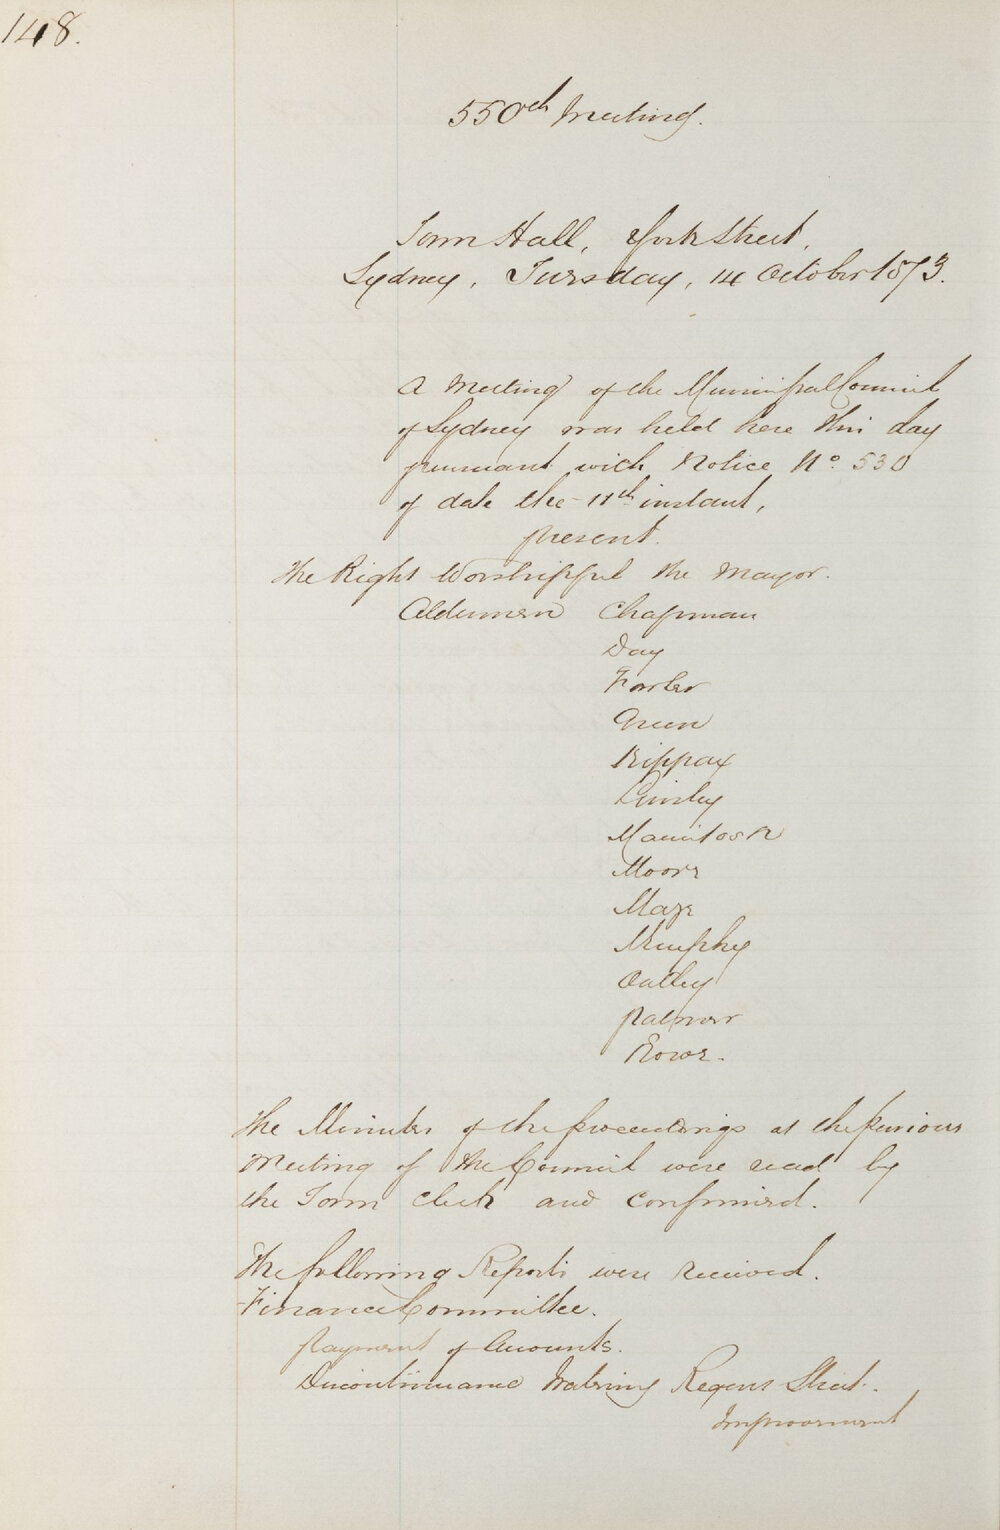 148.
550th Meeting.
Town Hall, York Street,
Sydney, Tuesday, 14 October 1873.
A Meeting of the Municipal Council
of Sydney was held here this day
pursuant with Notice No. 530
of date the 11th instant,
present.
The Right Worshipful the Mayor.
Aldermen Chapman
Day
Fowler
Green
Kippax
Linsley
Macintosh
Moore
Maze
Murphy
Oatley
Palmer
Rowe.
The Minutes of the proceedings at the previous
Meeting of the Council were read by
the Town Clerk and confirmed.
The following Reports were received.
Finance Committee.
Payment of Accounts.
Discontinuance Watering Regent Street.
Improvement